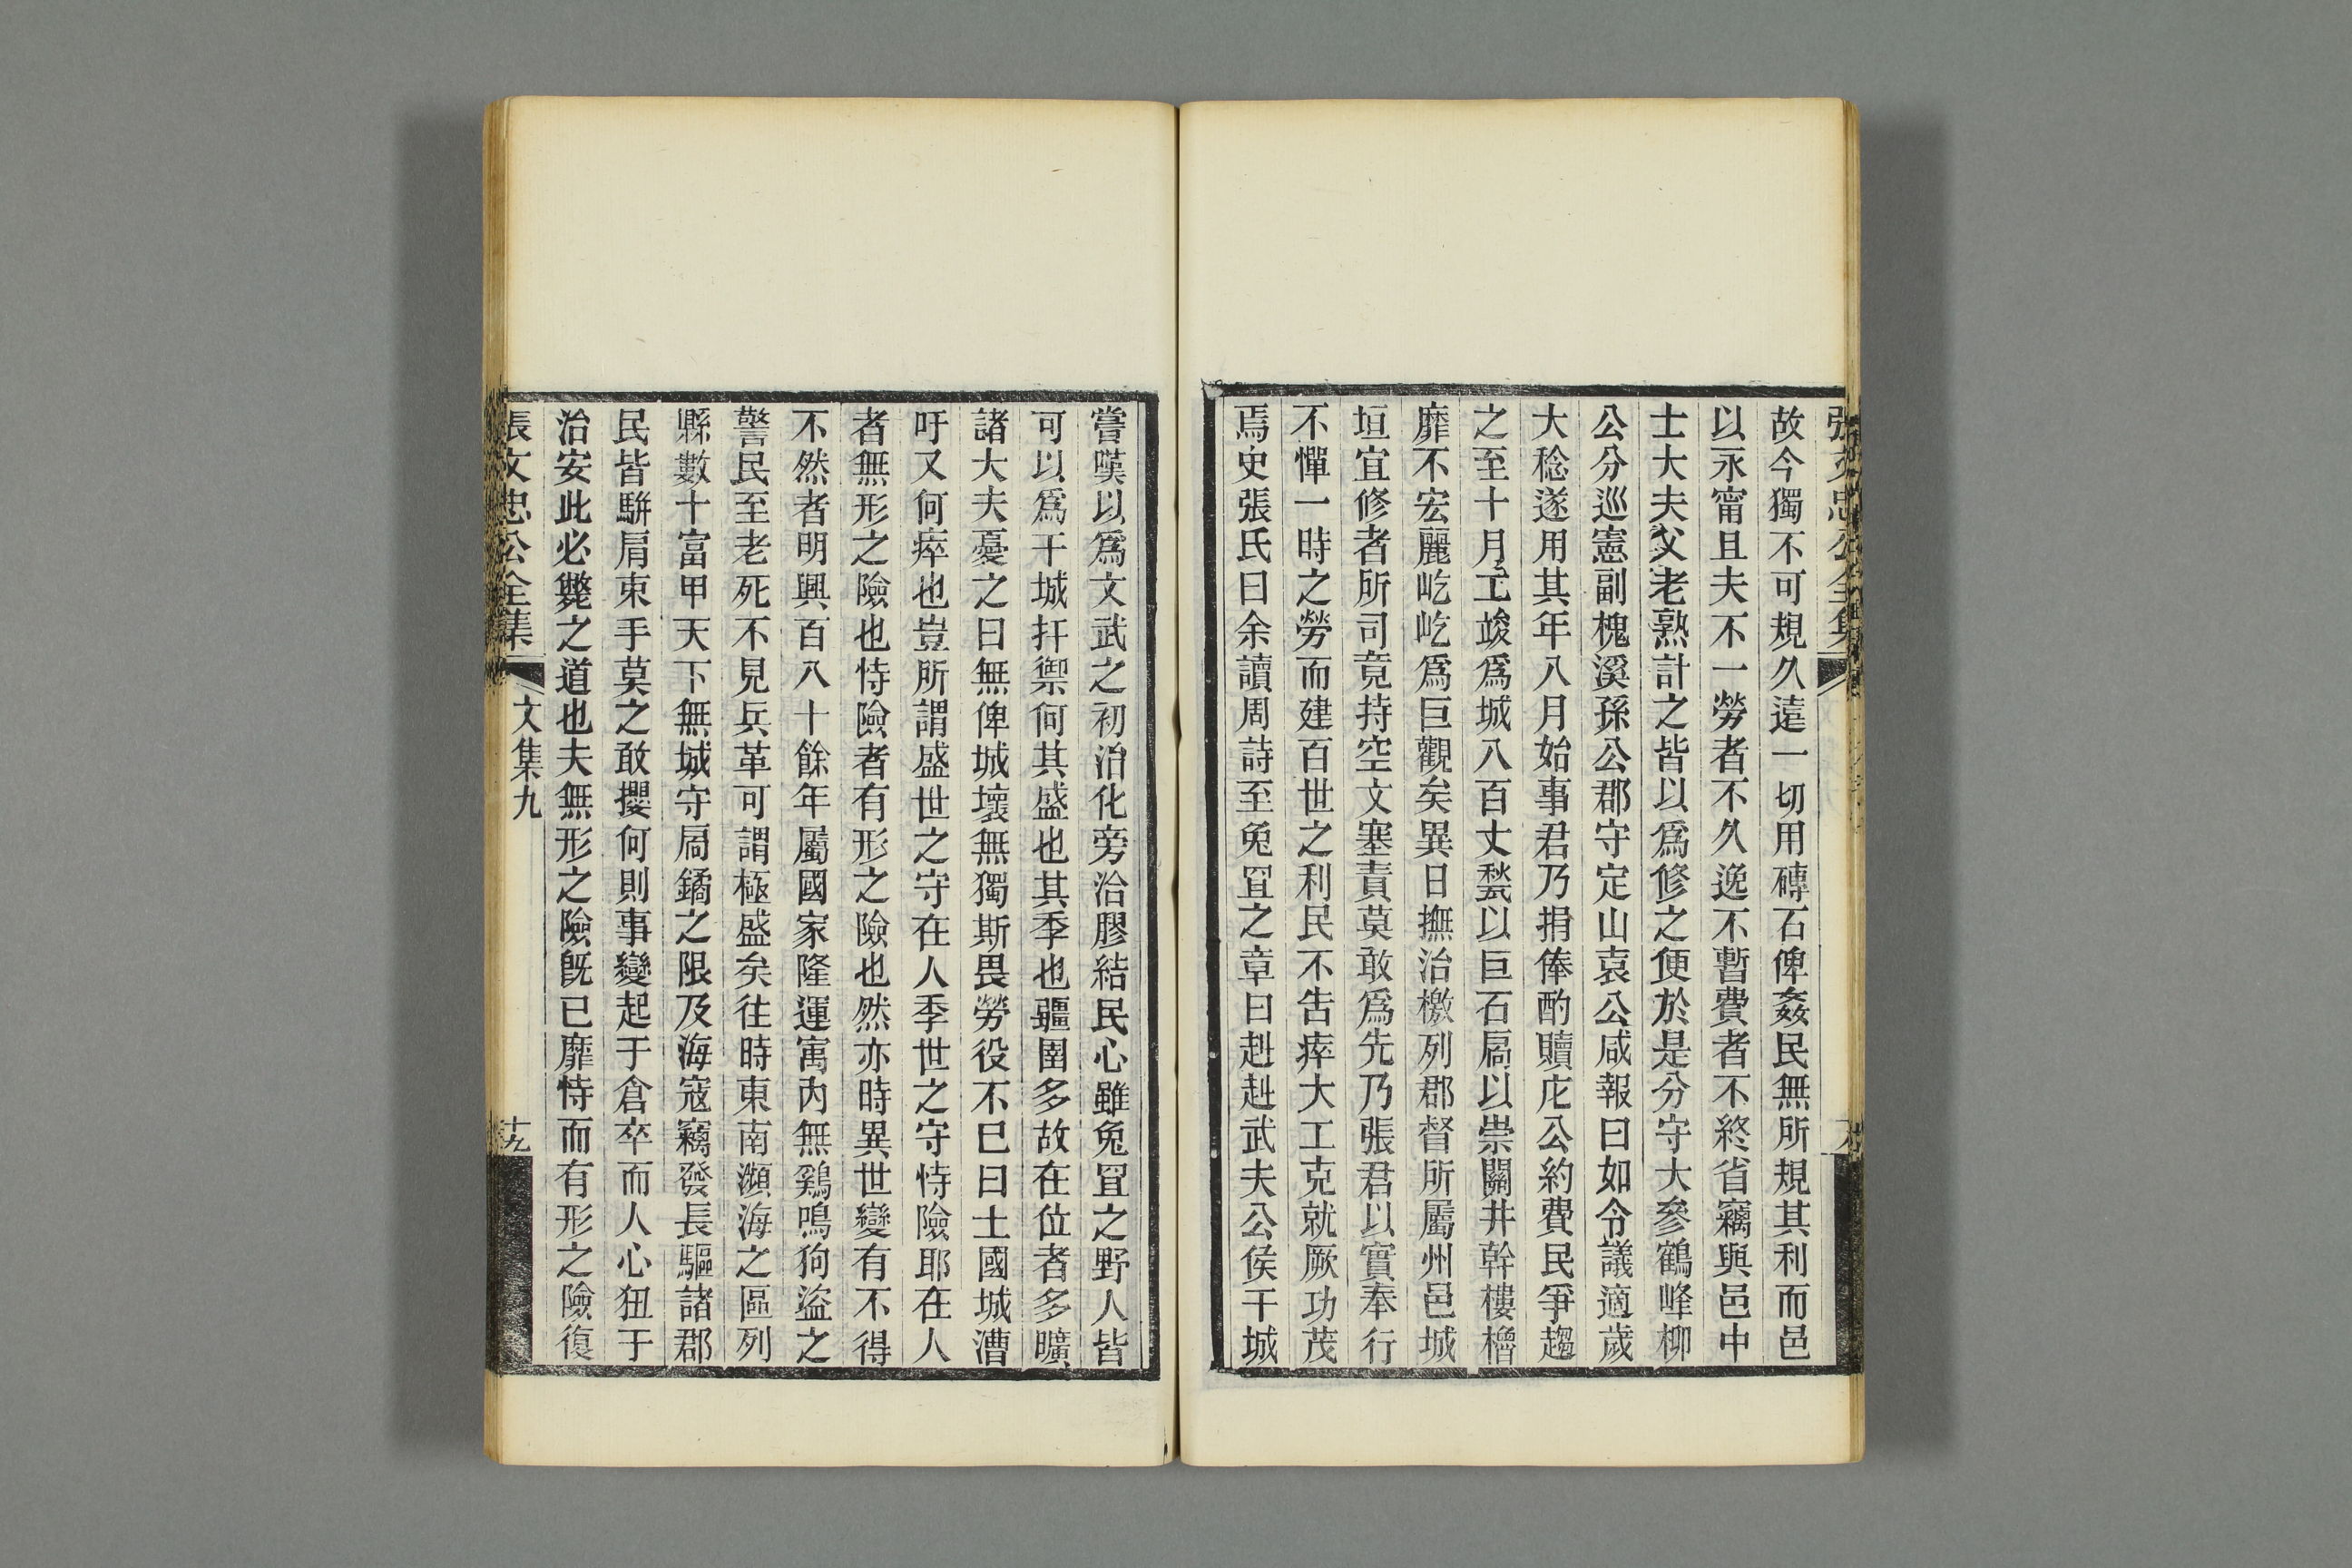 故今獨不可規久遠一切用磚石俾姦民無所規其利而邑
以永甯且夫不一勞者不久逸不暫費者不終省竊與邑中
士大夫父老熟計之皆以爲修之便於是分守大參鶴峰柳
公分巡憲副槐溪孫公郡守定山袁公咸報曰如令議適歲
大稔遂用其年八月始事君乃捐俸酌贖庀公約費民爭趨
之至十月工竣爲城八百丈甃以巨石扄以崇關井幹樓櫓
靡不宏麗屹屹爲巨觀矣異日撫治檄列郡督所屬州邑城
垣宜修者所司竟持空文塞責莫敢爲先乃張君以實奉行
不憚一時之勞而建百世之利民不告瘁大工克就厥功茂
焉史張氏曰余讀周詩至兔罝之章曰赳赳武夫公侯干城
嘗嘆以爲文武之初治化旁洽膠結民心雖兔罝之野人皆
可以爲干城扞禦何其盛也其季也疆圉多故在位者多曠
諸大夫憂之曰無俾城壞無獨斯畏勞役不巳曰土國城漕
吁又何瘁也豈所謂盛世之守在人季世之守恃險耶在人
者無形之險也恃險者有形之險也然亦時異世變有不得
不然者明興百八十餘年屬國家隆運寓內無鷄鳴狗盜之
警民至老死不見兵革可謂極盛矣往時東南瀕海之區列
縣數十富甲天下無城守扄鐍之限及海寇竊發長驅諸郡
民皆駢肩束手莫之敢攖何則事變起于倉卒而人心狃于
治安此必斃之道也夫無形之險旣已靡恃而有形之險復
張文忠公全集 文集九 十九